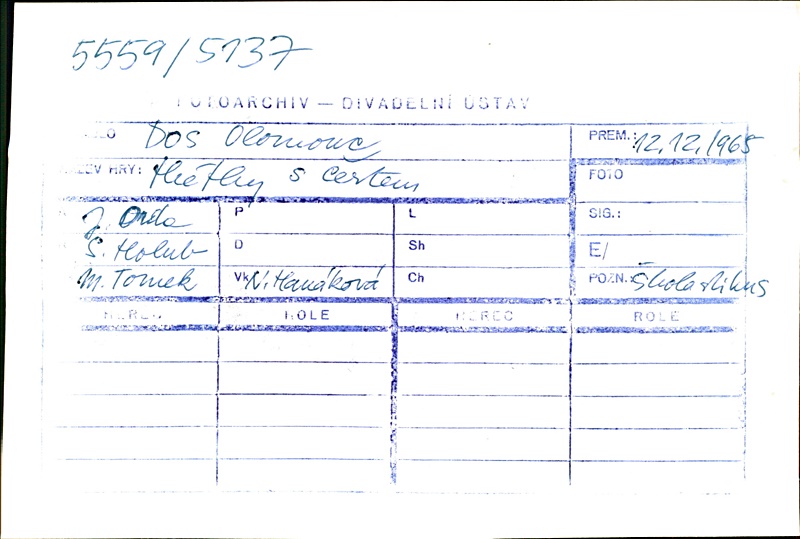 5559/5137
FOTOARCHIV — DIVADELNÍ ÚSTAV
LO DOS Olomouc PREM.: 12.12.1965
EV HRY: Hrátky s čertem FOTO
J. P L SIG.:
S. Holub D Sh E/
M. Tomek Vk N. Hanáková Ch POZN.: Školastikus
HEREC ROLE HEREC ROLE